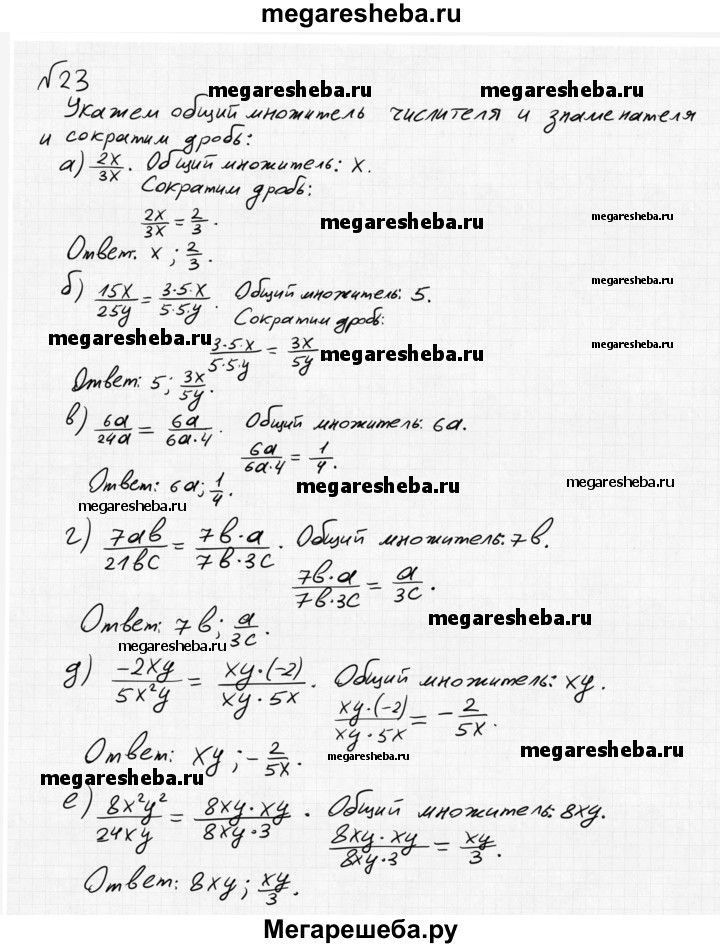 megaresheba.ru
№23
megaresheba.ru megaresheba.ru
Укажем общий множитель числителя и знаменателя
и сократим дробь:
megaresheba.ru
а) 2x/3x. Общий множитель: x.
Сократим дробь:
2x/3x = 2/3.
megaresheba.ru megaresheba.ru
Ответ. x; 2/3.
megaresheba.ru
б) 15x/25y = 3·5·x/5·5·y. Общий множитель: 5.
Сократим дробь:
megaresheba.ru
3·5·x/5·5·y = 3x/5y
megaresheba.ru megaresheba.ru
Ответ: 5; 3x/5y.
в) 6a/24a = 6a/6a·4. Общий множитель: 6a.
6a/6a·4 = 1/4.
Ответ: 6a; 1/4.
megaresheba.ru megaresheba.ru
megaresheba.ru
г) 7ab/21bc = 7b·a/7b·3c. Общий множитель: 7b.
7b·a/7b·3c = a/3c.
Ответ: 7b; a/3c.
megaresheba.ru
megaresheba.ru
д) -2xy/5x²y = xy·(-2)/xy·5x. Общий множитель: xy.
xy·(-2)/xy·5x = -2/5x.
Ответ: xy; -2/5x.
megaresheba.ru megaresheba.ru megaresheba.ru
е) 8x²y²/24xy = 8xy·xy/8xy·3. Общий множитель: 8xy.
8xy·xy/8xy·3 = xy/3.
Ответ: 8xy; xy/3.
Мегарешеба.ру